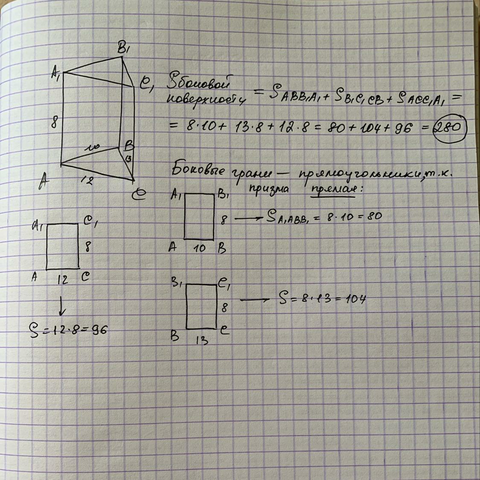 B₁
A₁
C₁
Sбоковой поверхности = S ABB₁A₁ + S B₁C₁CB + S ACC₁A₁ =
8
= 8·10 + 13·8 + 12·8 = 80 + 104 + 96 = 280
10
B
13
A
12
C
Боковые грани — прямоугольники, т.к.
призма прямая:
A₁ B₁
8 → S A₁ABB₁ = 8·10 = 80
A 10 B
A₁ C₁
8
A 12 C
S = 12·8 = 96
B₁ C₁
8 → S = 8·13 = 104
B 13 C